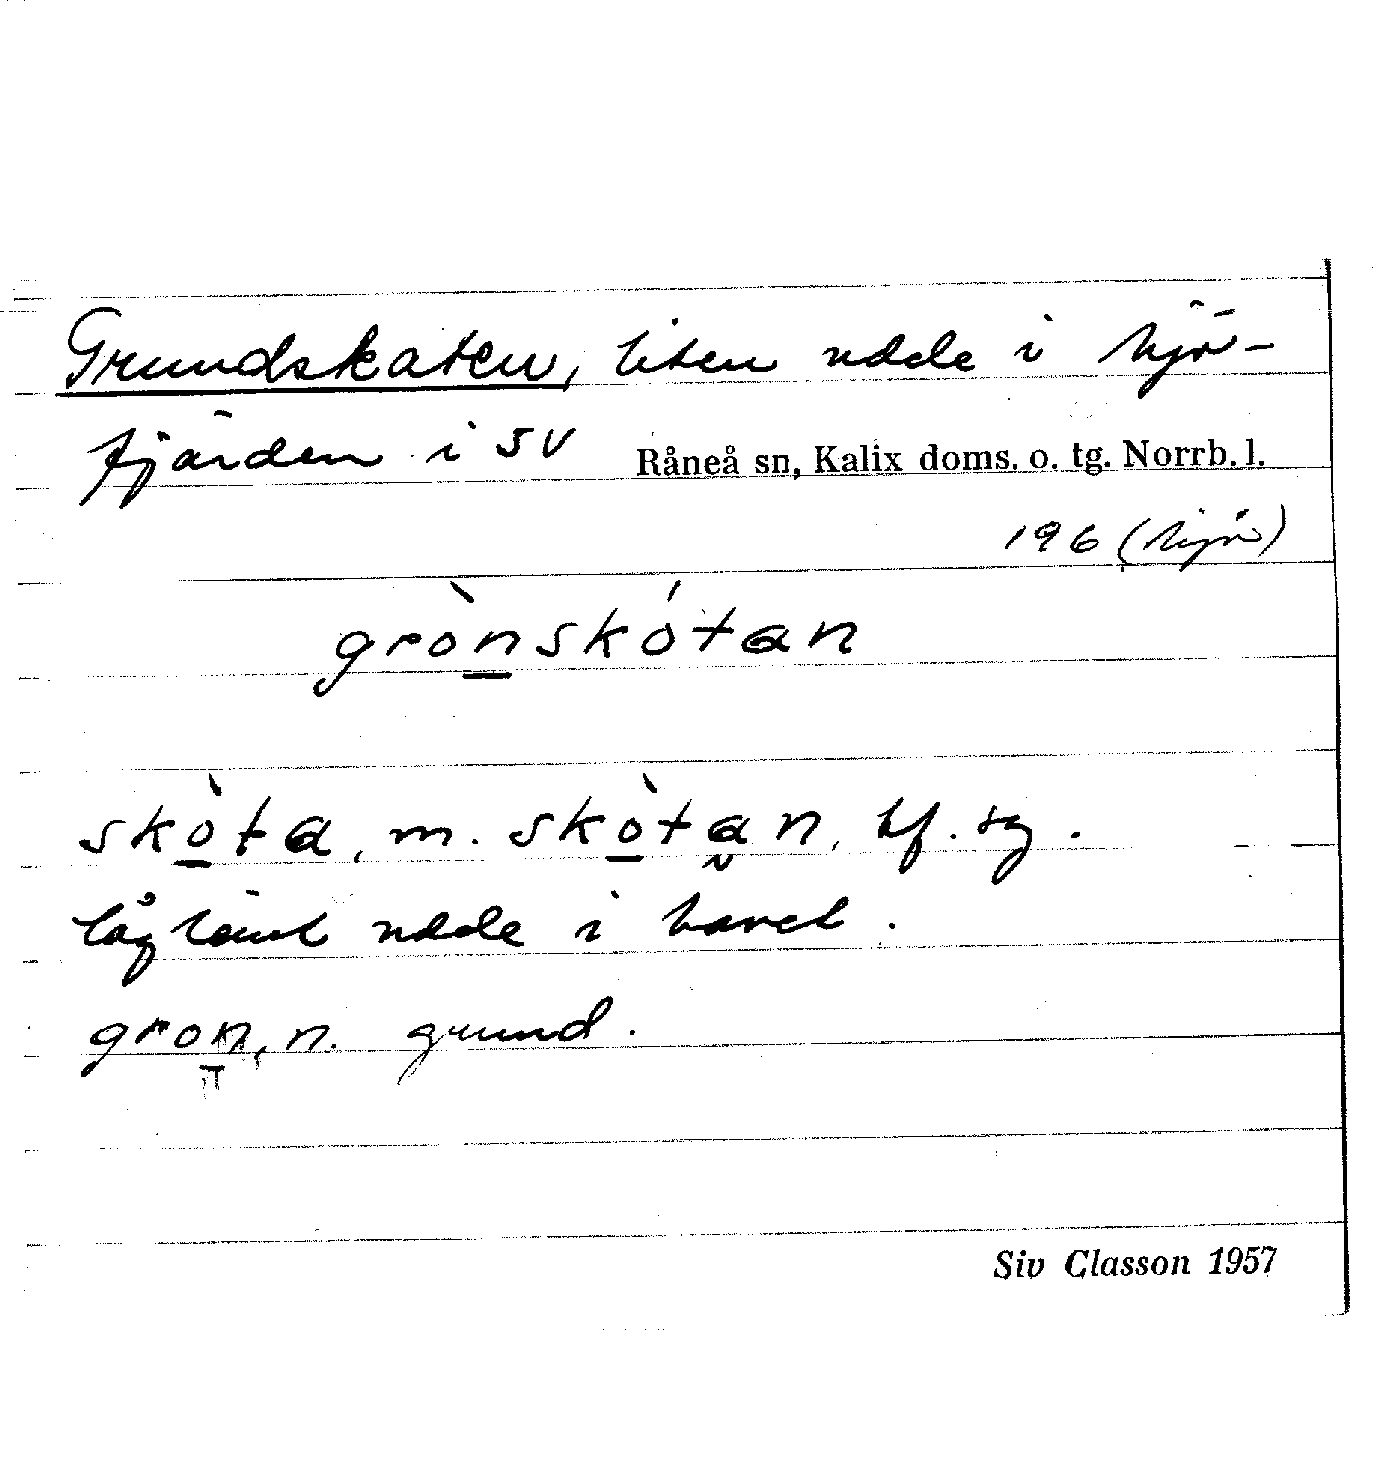 Grundskaten, liten udde i hjö-
fjärden i SV Råneå sn, Kalix doms. o. tg. Norrb. l.
196 (hjö)
grònskótan
skòta, m. skòtan, bf. sg.
låglänt udde i havet.
gron, n. grund.
Siv Classon 1957